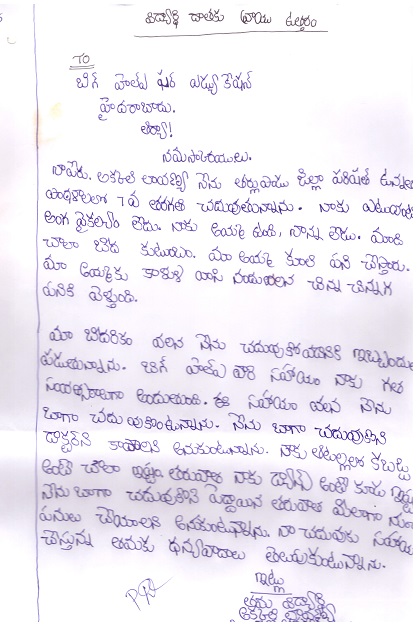 విద్యార్థి దాతకు వ్రాయు ఉత్తరం
TO
బిగ్ హెల్ప్ ఫర్ ఎడ్యుకేషన్
హైదరాబాదు.
ఆర్యా!
నమస్కారములు.
నాపేరు. అకతల లావణ్య నేను తర్లుపాడు జిల్లా పరిషత్ ఉన్నత
పాఠశాలలో 7వ తరగతి చదువుతున్నాను. నాకు ఎటువంటి
అంగ వైకల్యం లేదు. నాకు అమ్మ ఉంది, నాన్న లేడు. మాది
చాలా బీద కుటుంబం. మా అమ్మ కూలి పని చేస్తారు.
మా అమ్మకు కాళ్లు వాసి నందువలన చిన్న చిన్నగ
పనికి వెళ్తుంది.
మా బీదరికం వలన నేను చదువుకోవడానికి ఇబ్బందులు
పడుతున్నాను. బిగ్ హెల్ప్ వారి సహాయం నాకు గత
సంవత్సరాలుగా అందుతుంది. ఈ సహాయం వలన నేను
బాగా చదువుకుంటున్నాను. నేను బాగా చదువుకొని
డాక్టర్ని కావాలని అనుకుంటున్నాను. నాకు ఆటల్లలో కబడ్డి
అంటే చాలా ఇష్టం తరువాత నాకు డ్యాన్స్ అంటే కూడా ఇష్టం
నేను బాగా చదువుకొని పెద్దాయిన తరువాత మీలాగా మంచి
పనులు చేయాలని అనుకుంటున్నాను. నా చదువుకు సహాయం
చేస్తున్న తమకు ధన్యవాదాలు తెలుపుకుంటున్నాను.
ఇట్లు
తమ విద్యార్థి